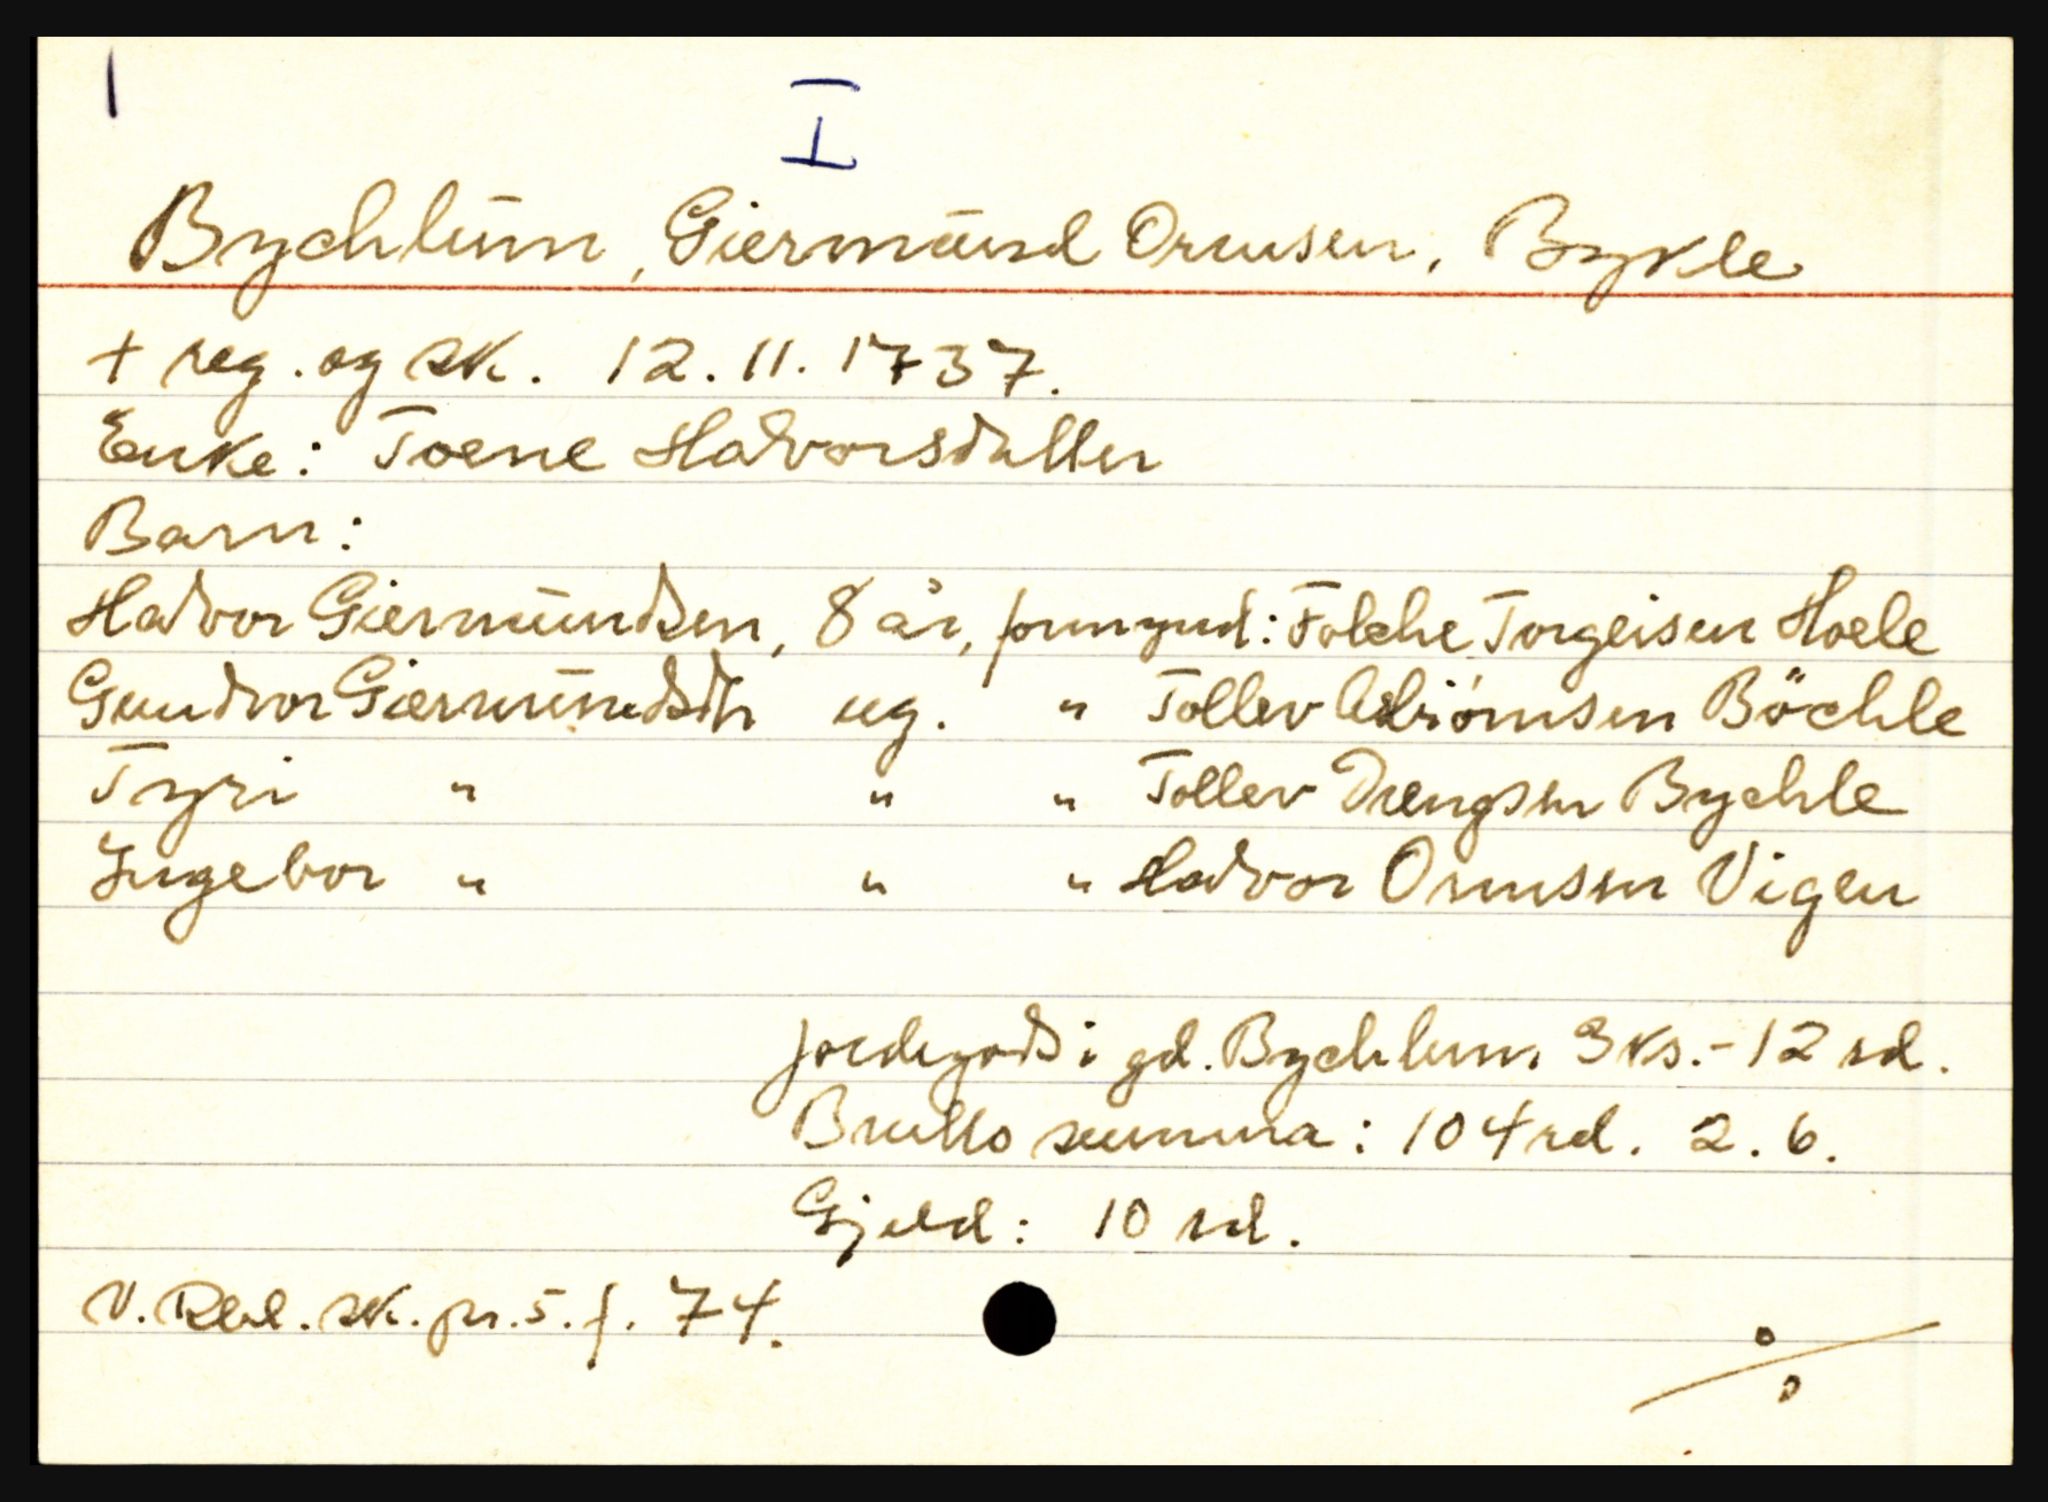 1
I
Bychlum, Giermund Ormsen, Bykle
+ reg. og sk. 12.11.1737.
Enke: Toene Halvorsdatter
Barn:
Halvor Giermundsen, 8 år, formynd: Folche Torgeisen Hoele
Gundvor Giermundsdtr ug. " Tollev Asbiömsen Böchle
Tyri " " " Tollev Drengsen Bychle
Ingebor " " " Halvor Osmusen Vigen
Jordegods i gd. Bychlum 3 ks. - 12 rd.
Brutto summa: 104 rd. 2. 6.
Gjeld: 10 rd.
V. Rbl. sk. pr. 5. f. 74.